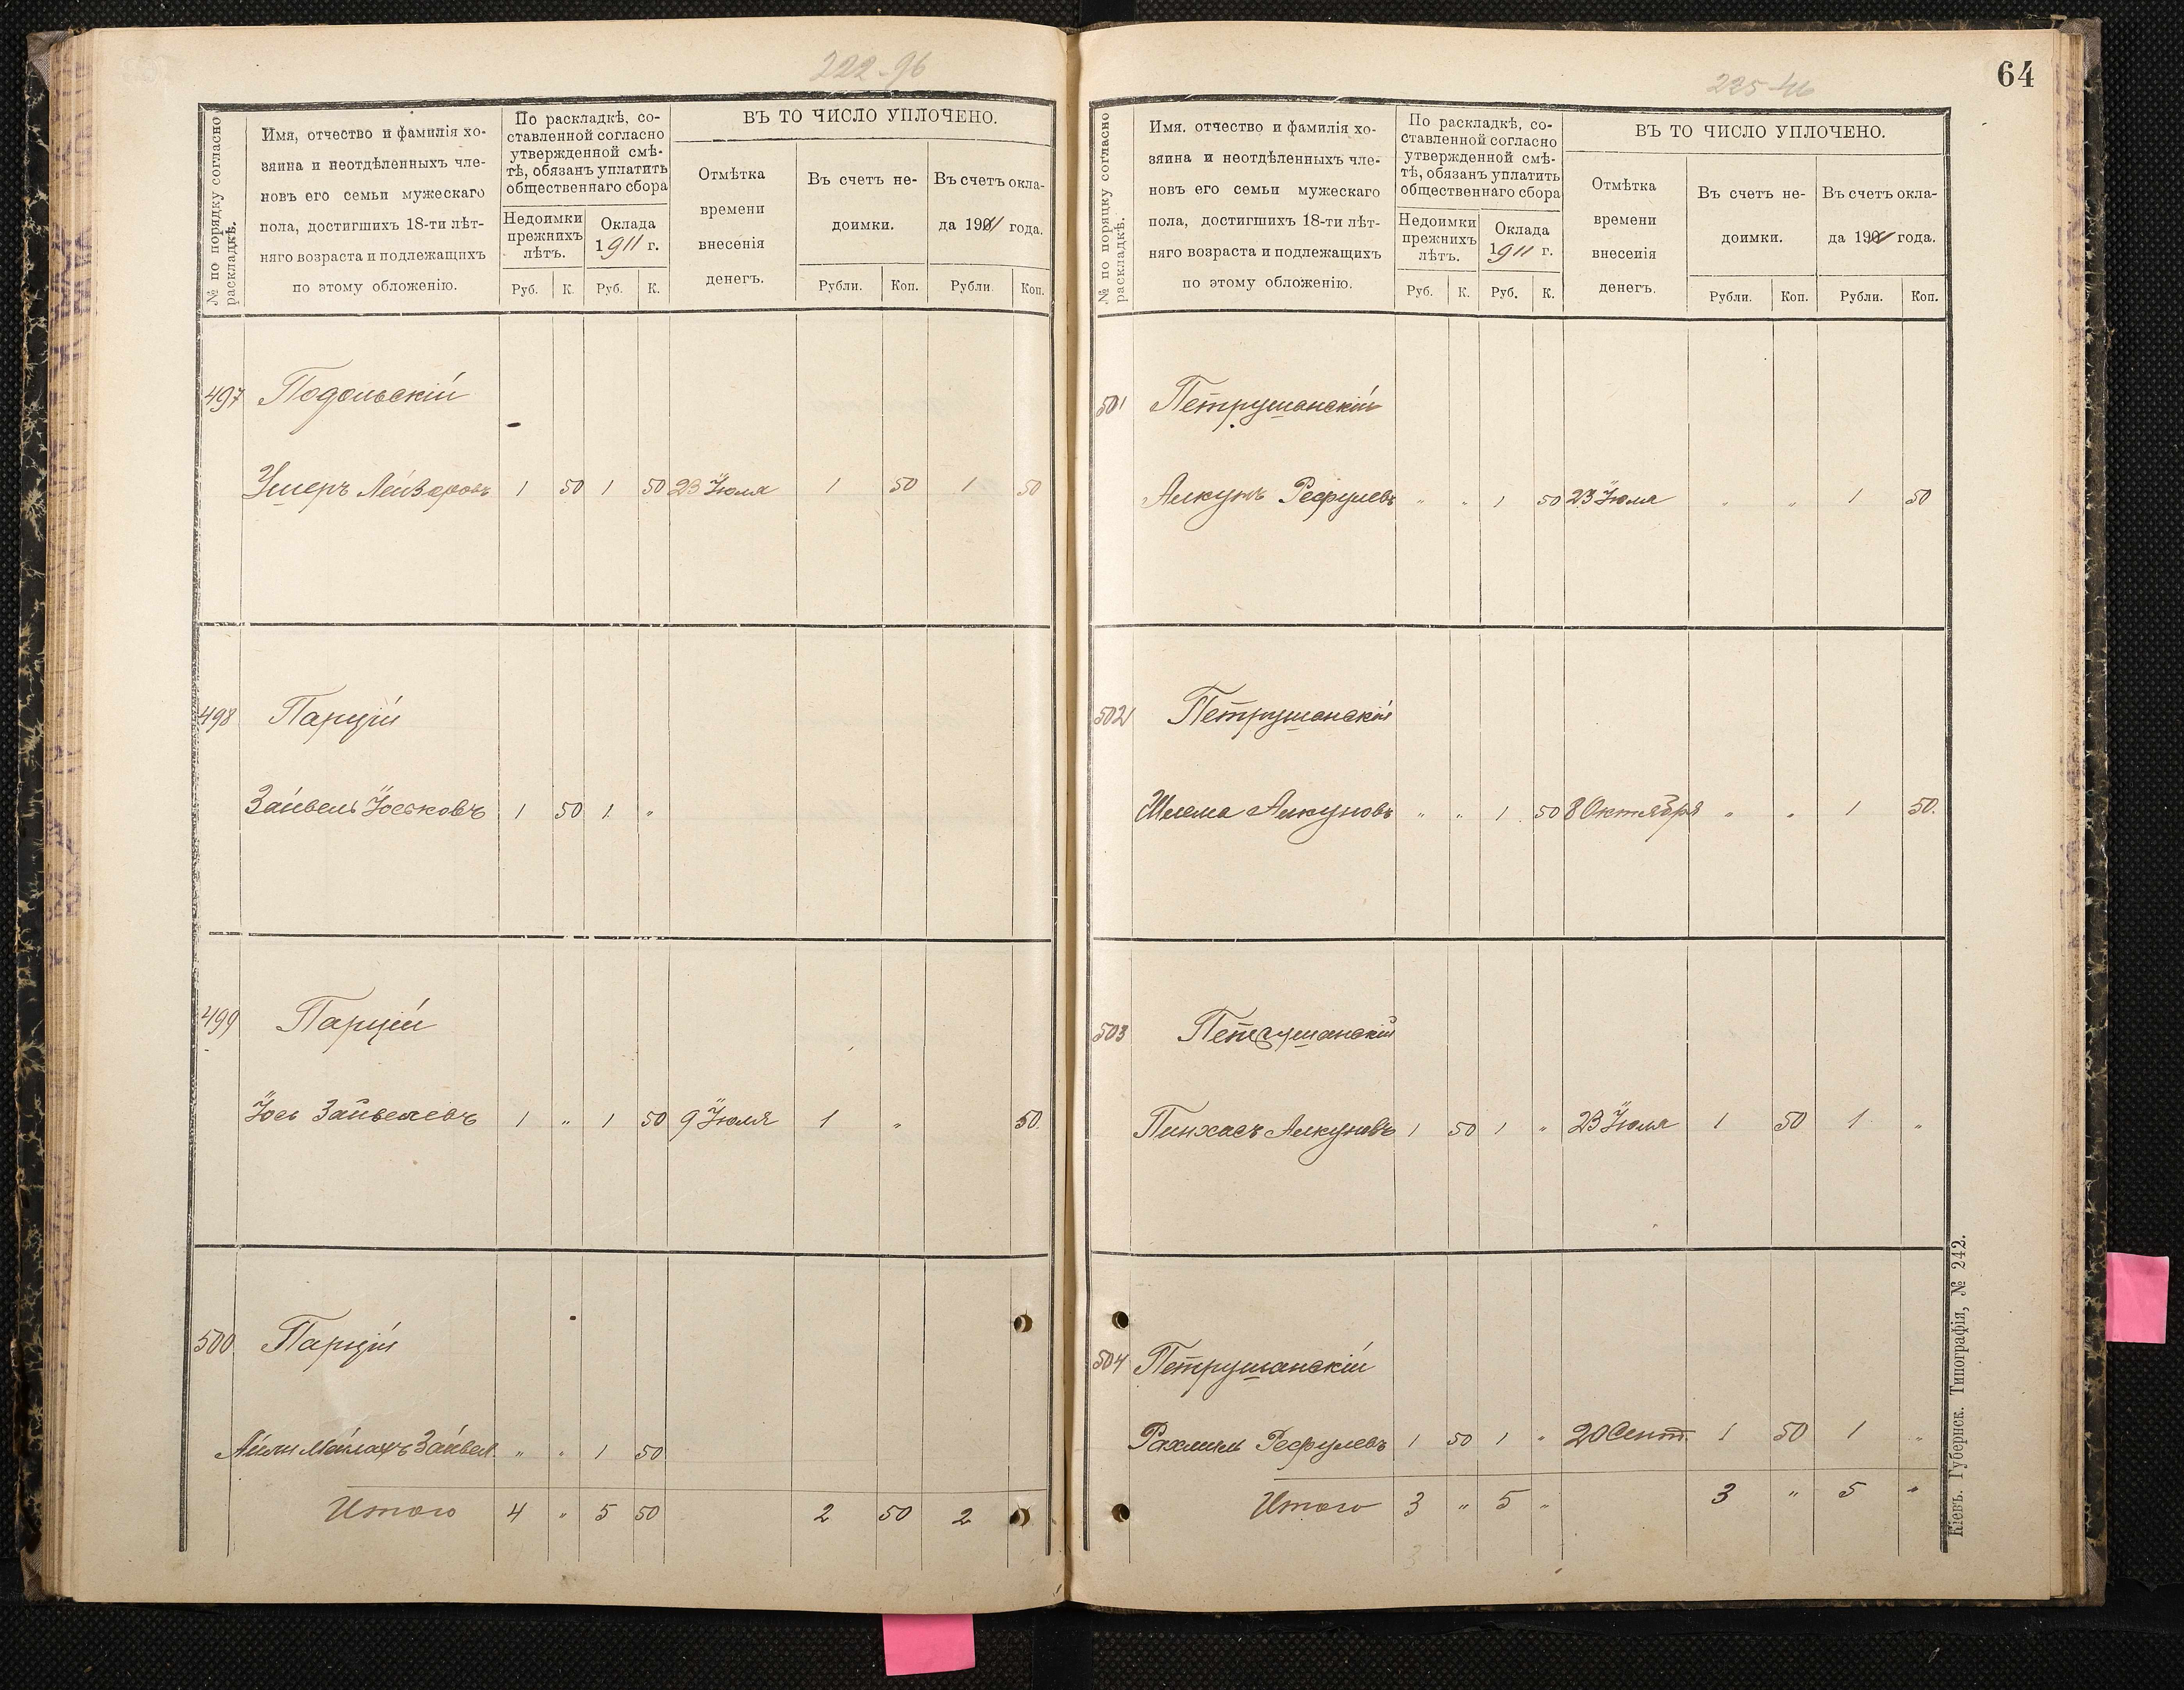 222-96
№ по порядку согласно раскладкѣ.
Имя, отчество и фамилія хо-
зяина и неотдѣленныхъ чле-
новъ его семьи мужескаго
пола, достигшихъ 18-ти лѣт-
няго возраста и подлежащихъ
по этому обложенію.
По раскладкѣ, со-
ставленной согласно
утвержденной смѣ-
тѣ, обязанъ уплатить
общественнаго сбора
Недоимки
прежнихъ
лѣтъ.
Оклада
1911 г.
ВЪ ТО ЧИСЛО УПЛОЧЕНО.
Отмѣтка
времени
внесенія
денегъ.
Въ счетъ не-
доимки.
Въ счетъ окла-
да 1911 года.
Руб. К. Руб. К. Рубли. Коп. Рубли. Коп.
497 Подольскій
Ушеръ Лейзеровъ 1 50 1 50 23 Іюля 1 50 1 50
498 Парцій
Зайвель Іоськовъ 1 50 1 "
499 Парцій
Іось Зайвелевъ 1 " 1 50 9 Іюля 1 " 50
500 Парцій
Зайвел. " " 1 50
Итого 4 " 5 50 2 50 2
225-46
64
№ по порядку согласно раскладкѣ.
Имя. отчество и фамилія хо-
зяина и неотдѣленныхъ чле-
новъ его семьи мужескаго
пола, достигшихъ 18-ти лѣт-
няго возраста и подлежащихъ
по этому обложенію.
По раскладкѣ, со-
ставленной согласно
утвержденной смѣ-
тѣ, обязанъ уплатить
общественнаго сбора
Недоимки
прежнихъ
лѣтъ.
Оклада
1911 г.
ВЪ ТО ЧИСЛО УПЛОЧЕНО.
Отмѣтка
времени
внесенія
денегъ.
Въ счетъ не-
доимки.
Въ счетъ окла-
да 1911 года.
Руб. К. Руб. К. Рубли. Коп. Рубли. Коп.
501 Петрушанскій
Алкунъ Рефулевъ " " 1 50 23 Іюля " " 1 50
502 Петрушанскій
Шлема Алкуновъ " " 1 50 8 Октября " " 1 50.
503 Петрушанскій
Пинхасъ Алкуновъ 1 50 1 " 23 Іюля 1 50 1 "
504 Петрушанскій
Рахмиль Рефулевъ 1 50 1 " 20 Сент. 1 50 1 "
Итого 3 " 5 " 3 " 5 "
3
Кіевъ. Губернск. Типографія, № 242.